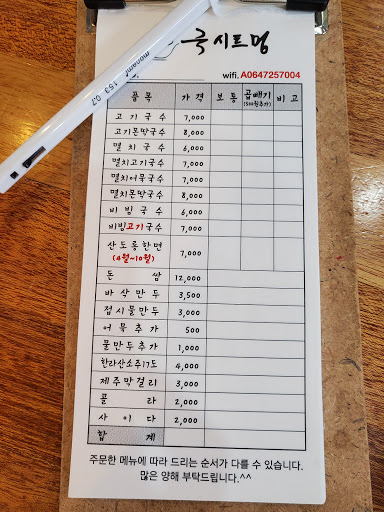 국시트멍
wifi. A0647257004
품목 가격 보통 곱빼기 (500원추가) 비고
고기국수 7,000
고기몬딱국수 8,000
멸치국수 6,000
멸치고기국수 7,000
멸치어묵국수 7,000
멸치몬딱국수 8,000
비빔국수 6,000
비빔고기국수 7,000
산도롱한면 (4월~10월) 7,000
돈쌈 12,000
바삭만두 3,500
접시물만두 3,000
어묵추가 500
물만두추가 1,000
한라산소주17도 4,000
제주막걸리 3,000
콜라 2,000
사이다 2,000
합계
주문한 메뉴에 따라 드리는 순서가 다를 수 있습니다.
많은 양해 부탁드립니다.^^
monami 153 0.7